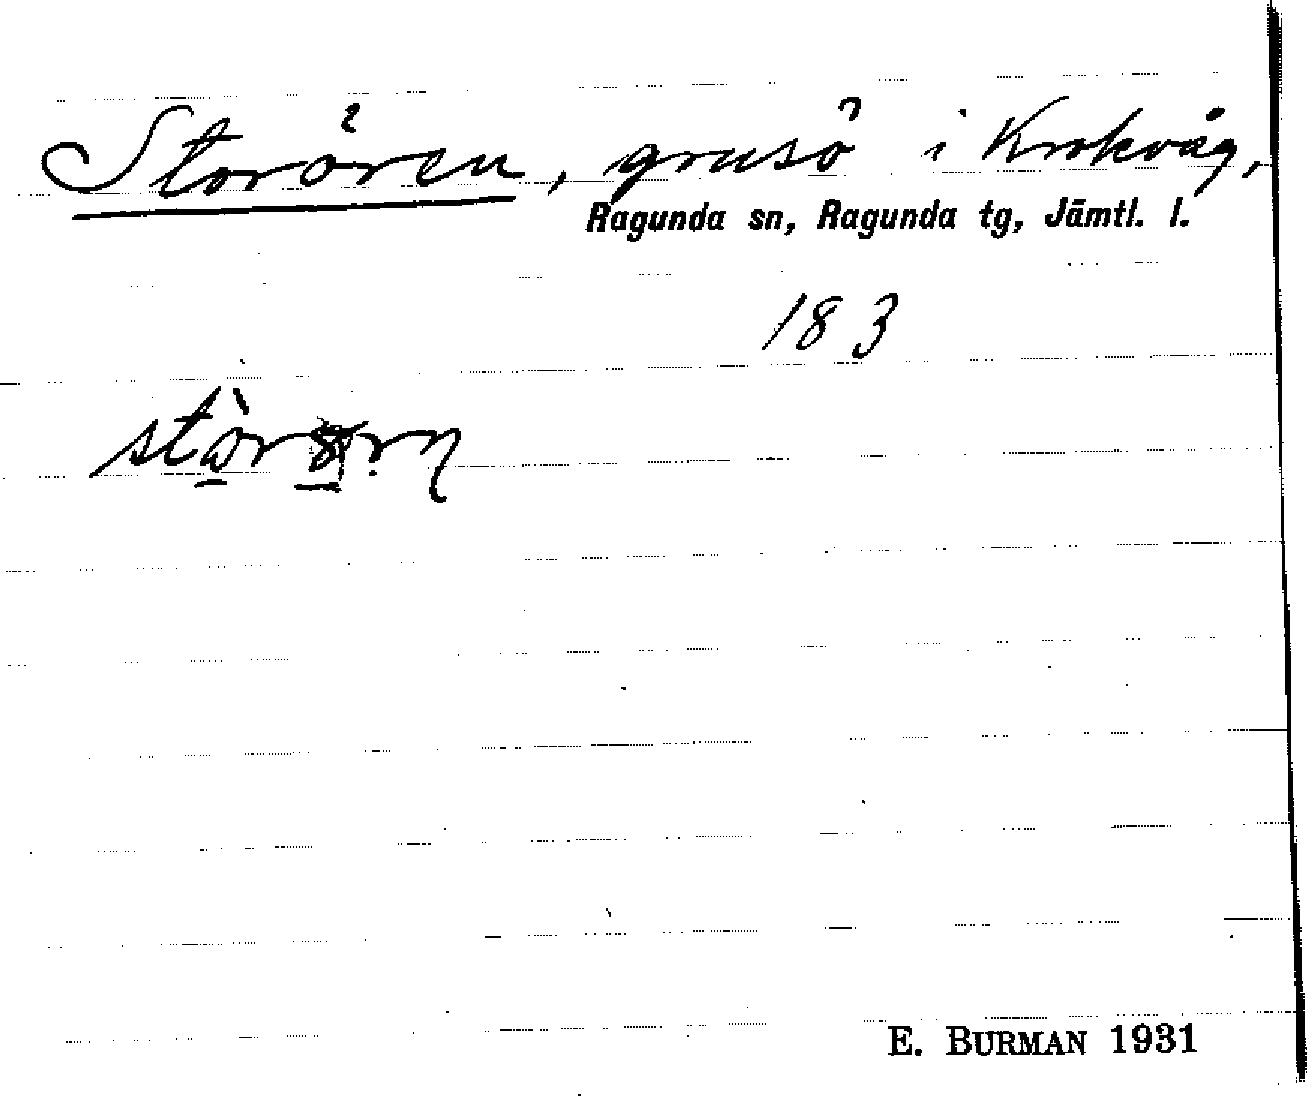 Storören, grusö i Krokvåg,
Ragunda sn, Ragunda tg, Jämtl. l.
183
E. BURMAN 1931